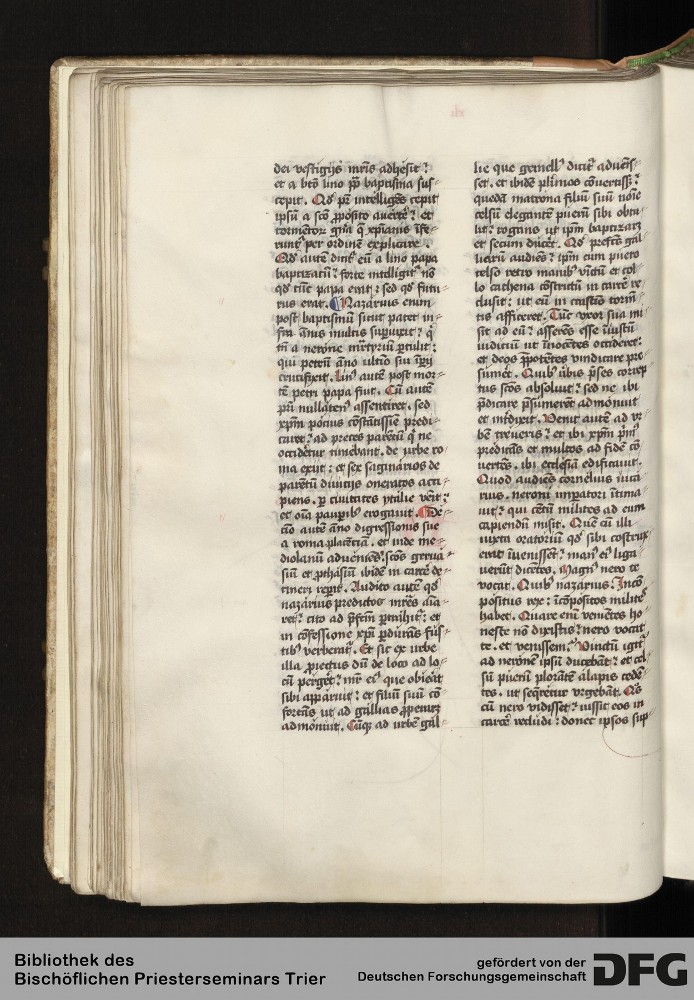 dei vestigijs mris adhesit ⁊
et a bto lino pp baptisma sus-
cepit. Qd pr intelligens cepit
ipsu a sco pposito avertere ⁊ et
tormentor gna q xpianis infe-
runt per ordine explicare.
Qd aute dicit eu a lino papa
baptizatu ⁊ forte intelligit no
qd tuc papa erat ⁊ sed qd futu-
rus erat. Nazarius enim
post baptismu sicut patet in-
fra annis multis supuixit ⁊ q
tn a nerone martyriu ptulit ⁊
qui petru ano ultio sui impij
crucifixit. Lin9 aute post mor-
te petri papa fuit. Cu aute
pri nullaten9 assentiret. sed
xpm potius constatissime predi-
caret ⁊ ad preces paretu q ne
occidetur timebant. de urbe ro-
ma exijt ⁊ et sex saginarios de
paretu diuitijs oneratos acci-
piens. p ciuitates ytalie venit ⁊
et oia paupib9 erogauit. De-
cio aute ano digressionis sue
a roma placetia. et inde me-
diolanu adueniens. scos gerua-
siu et pthasiu ibide in carce de-
tineri repit. Audito aute qd
nazarius predictos mres aia-
ret ⁊ cito ad pfem ptrahit ⁊ et
in cofessione xpi pdurans fus-
tib9 verberat. Et sic ex urbe
illa proiectus du de loco ad lo-
cu perget ⁊ mr ei9 que obierat
sibi apparuit ⁊ et filiu suu co-
fortans ut ad gallias properaret
admonuit. Cuq ad urbe gal-
xli
lie que gemell9 dicit aduenis-
set. et ibide plimos couertiss ⁊
queda matrona filiu suu noie
celsu elegante pueru sibi obtu-
lit ⁊ rogans ut ipm baptizaret
et secum duceret. Qd prefects gal-
liaru audies ⁊ ipm cum puero
celso retro manib9 vinctu et col-
lo cathena costrictu in carce re-
clusit ⁊ ut eu in crastio torm-
tis afficeret. Tuc vxor sua mi-
sit ad eu ⁊ asserens esse iniustu
iudiciu ut inocetes occideret ⁊
et deos ppotetes vindicare pre-
sumet. Quib9 ubis pses corrept-
tus scos absoluit ⁊ sed ne ibi
pdicare psumeret admonuit
et interdixit. Venit aute ad ur-
be treueris ⁊ et ibi xpm prim9
predicas et multos ad fide co-
uertes. ibi ecclesia edificauit.
Quod audies cornelius uica-
rius. neroni imperatori intima-
uit ⁊ qui centu milites ad eum
capiendu misit. Que cu illi
iuxta oratoriu qd sibi costrux-
erat inuenisset ⁊ man9 ei9 liga-
uerut dicetes. Magn9 nero te
vocat. Quib9 nazarius ⁊ Inco-
positus rex ⁊ incopositos milites
habet. Quare eni veniētes ho-
neste no dixistis ⁊ nero vocat
te. et venissem ⁊ Vinctu igit
ad nerone ipsu ducebat ⁊ et cel-
su pueru plorate alapis cede-
tes. ut sequeretur urgebant. Qs
cu nero vidisset ⁊ iussit eos in
carce recludi ⁊ donec ipsos sup-
Bibliothek des
Bischöflichen Priesterseminars Trier
gefördert von der
Deutschen Forschungsgemeinschaft
DFG